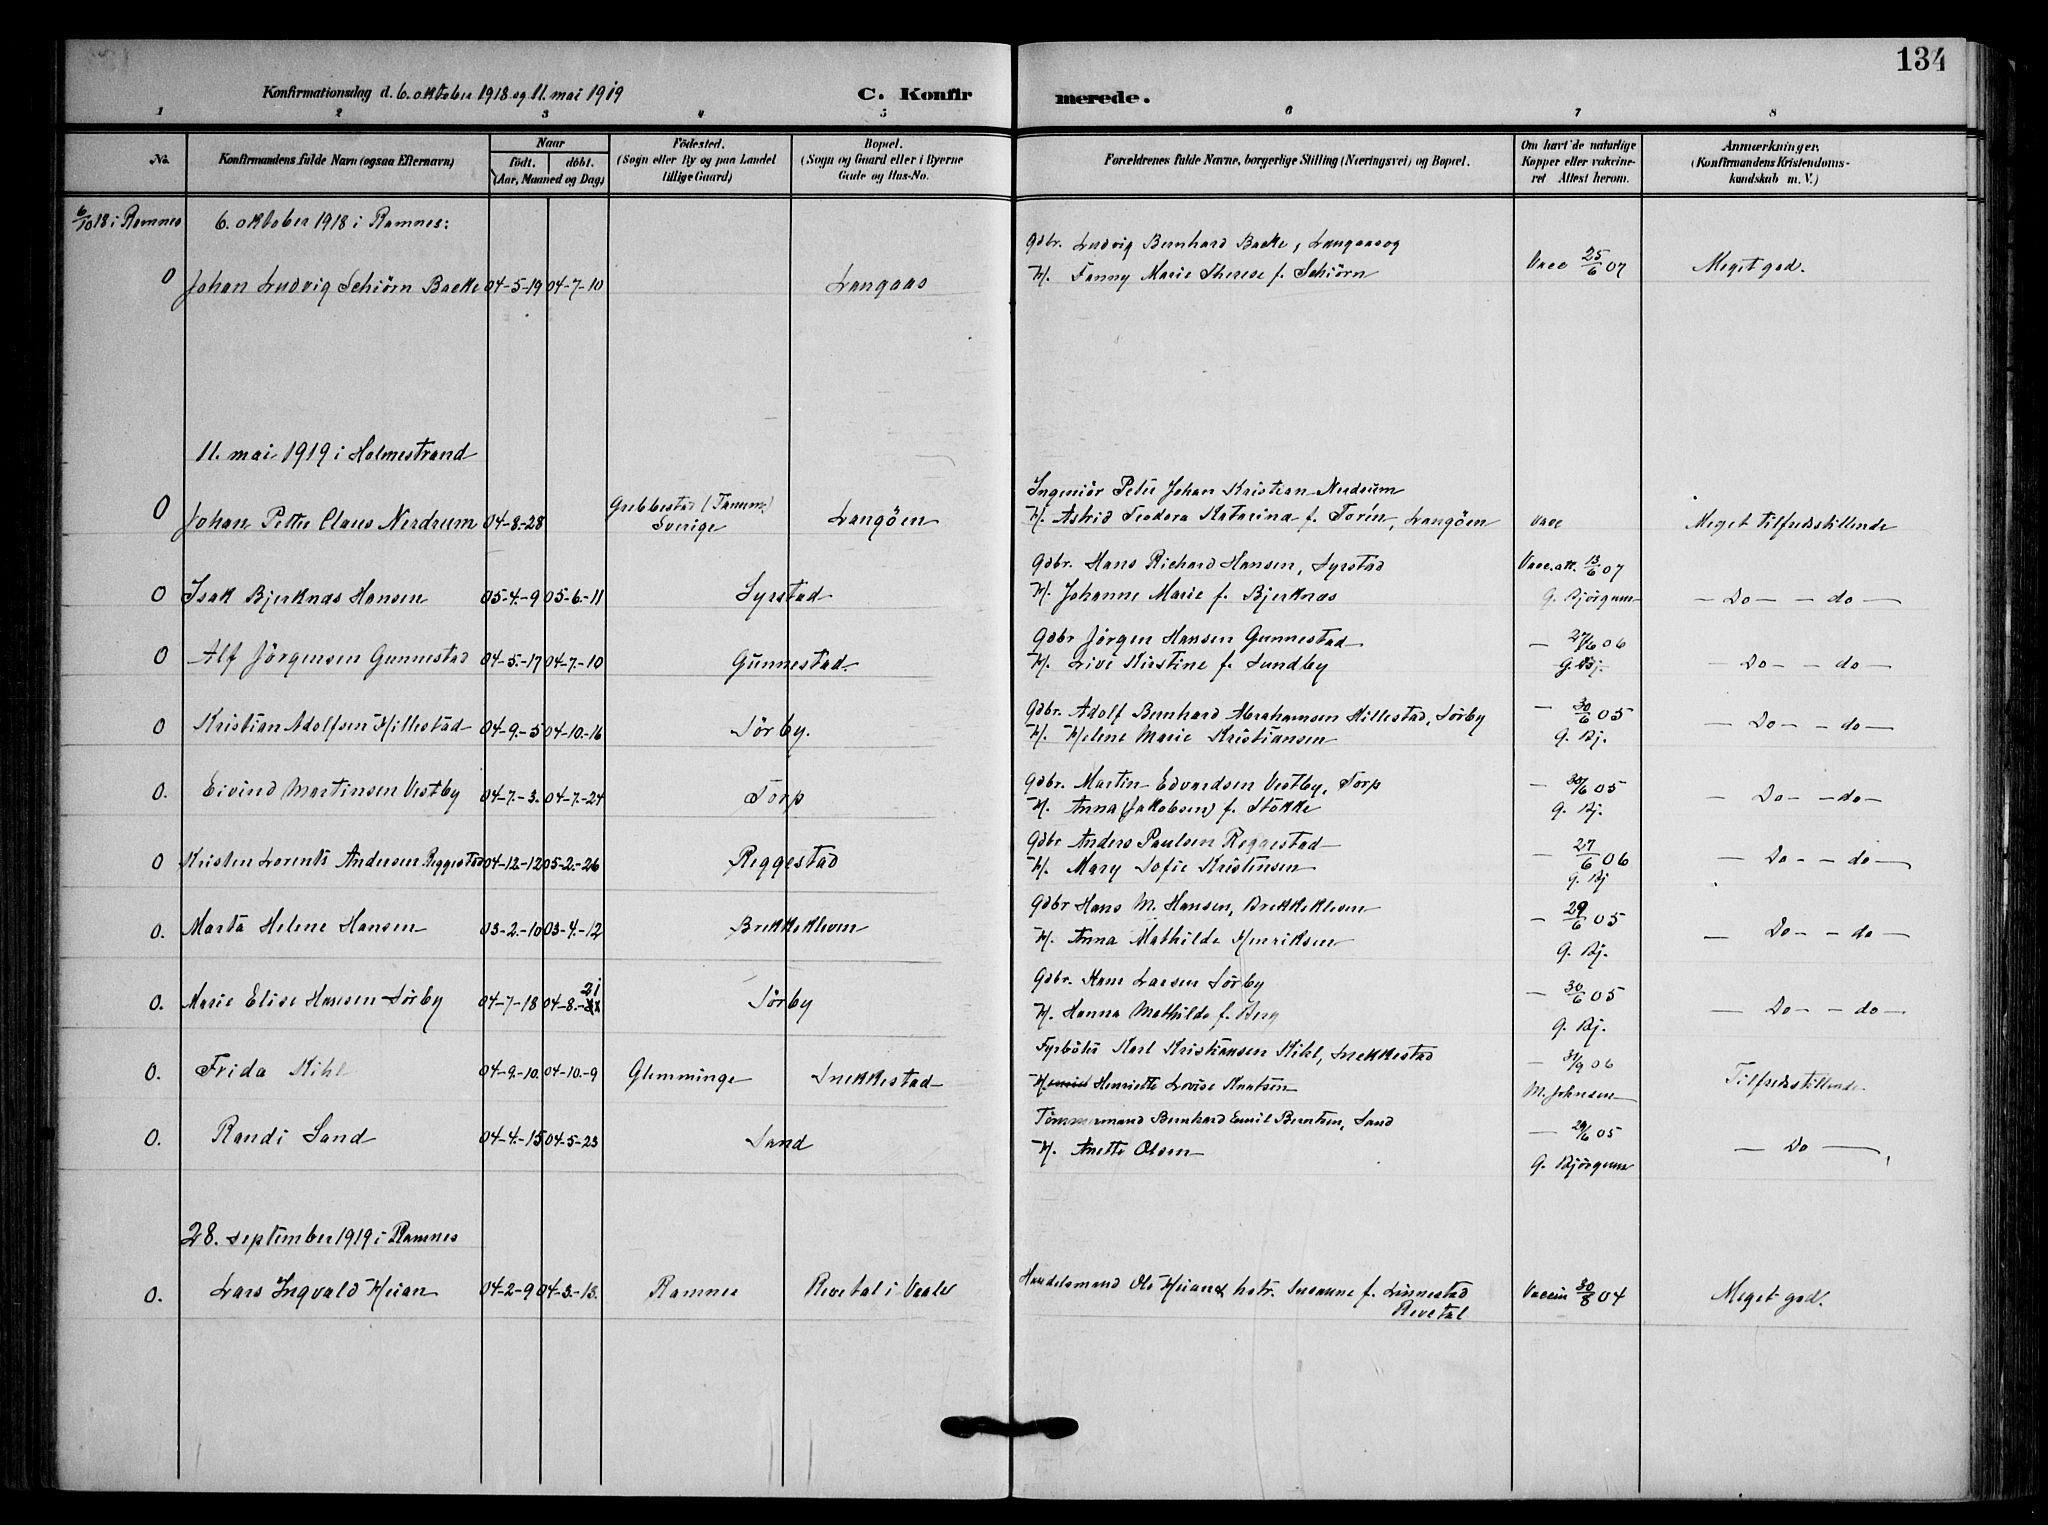 134
Konfirmationsdag d. 6. oktober 1918 og 11. mai 1919 C. Konfir merede.
1 2 3 4 5 6 7 8
No. Konfirmandens fulde Navn (ogsaa Efternavn) Naar født. døbt. (Aar, Maaned og Dag) Fødested. (Sogn eller By og paa Landet tillige Gaard) Bopæl. (Sogn og Gaard eller i Byerne Gade og Hus-No. Forældrenes fulde Navne, borgerlige Stilling (Næringsvei) og Bopæl. Om havt de naturlige Kopper eller vakcineret Attest herom. Anmærkninger. (Konfirmandens Kristendomskundskab m. V.)
6/10 18 i Ramnes 6. oktober 1918 i Ramnes:
Gdbr. Ludvig Bernhard Bække, Langaas og
0 Johan Ludvig Schiörn Bække 04-5-19 04-7-10 Langaas H. Fanny Marie Therese f. Schiörn Vacc 25/6 07 Meget god.
11. mai 1919 i Holmestrand
Ingeniör Peter Johan Kristian Nerdrum
0 Johan Petter Claus Nerdrum 04-8-28 Grebbestad (Tanum) Sverige Langöen H. Astrid Teodora Katarina f. Torén, Langöen Vacc Meget tilfredsstillende
Gdbr. Hans Richard Hansen, Syrstad Vacc. att. 13/6 07
0 Isak Bjerknæs Hansen 05-4-9 05-6-11 Syrstad H. Johanne Marie f. Bjerknæs G. Bjørgum - Do - - do -
Gdbr Jörgen Hansen Gunnestad - 27/6 06
0 Alf Jörgensen Gunnestad 04-5-17 04-7-10 Gunnestad. H. Livi Kirstine f. Sundby G. Bj. - Do - - do -
Gdbr. Adolf Bernhard Abrahamsen Hillestad, Sörby - 30/6 05
0 Kristian Adolfsen Hillestad 04-9-5 04-10-16 Sörby. H. Helene Marie Kristiansen G. Bj. - Do - - do -
Gdbr. Martin Edvardsen Vestby, Torp - 30/6 05
0. Eivind Martinsen Vestby 04-7-3. 04-7-24 Torp H. Anna (Jakobsen) f. Stökke G. Bj. - Do - - do -
Gdbr Anders Paulsen Reggestad - 27/6 06
0 Kristen Lorents Andersen Reggestad 04-12-12 05-2-26 Reggestad H. Mary Sofie Kristensen G. Bj - Do - - do -
Gdbr Hans M. Hansen, Brekkekleven - 29/6 05
0. Marta Helene Hansen 03-2-10 03-4-12 Brekkekleven H. Anna Mathilde Henriksen G. Bj. - Do - - do -
Gdbr. Hans Larsen Sörby - 30/6 05
0. Marie Elise Hansen Sörby 04-7-18 04-8-21 Sörby H. Hanna Mathilde f. Berg G. Bj. - Do - - do -
Fyrböter Karl Kristiansen Kihl, Snekkestad - 31/9 06
0. Frida Kihl 04-9-10. 04-10-9 Glemminge Snekkestad H. Henriette Lovise Knutsen M. Johnsen Tilfredsstillende
Tömmermand Bernhard Emil Berntsen, Sand - 29/6 05
0. Randi Sand 04-4-15 04-5-23 Sand H. Anette Olsen G. Bjørgum - Do -
28. september 1919 i Ramnes
0. Lars Ingvald Heian 04-2-9 04-3-13. Ramnes Revetal i Vaale Handelsmand Ole Heian & hstr. Susanne f. Linnestad Revetal Vaccin 30/8 04 Meget god.